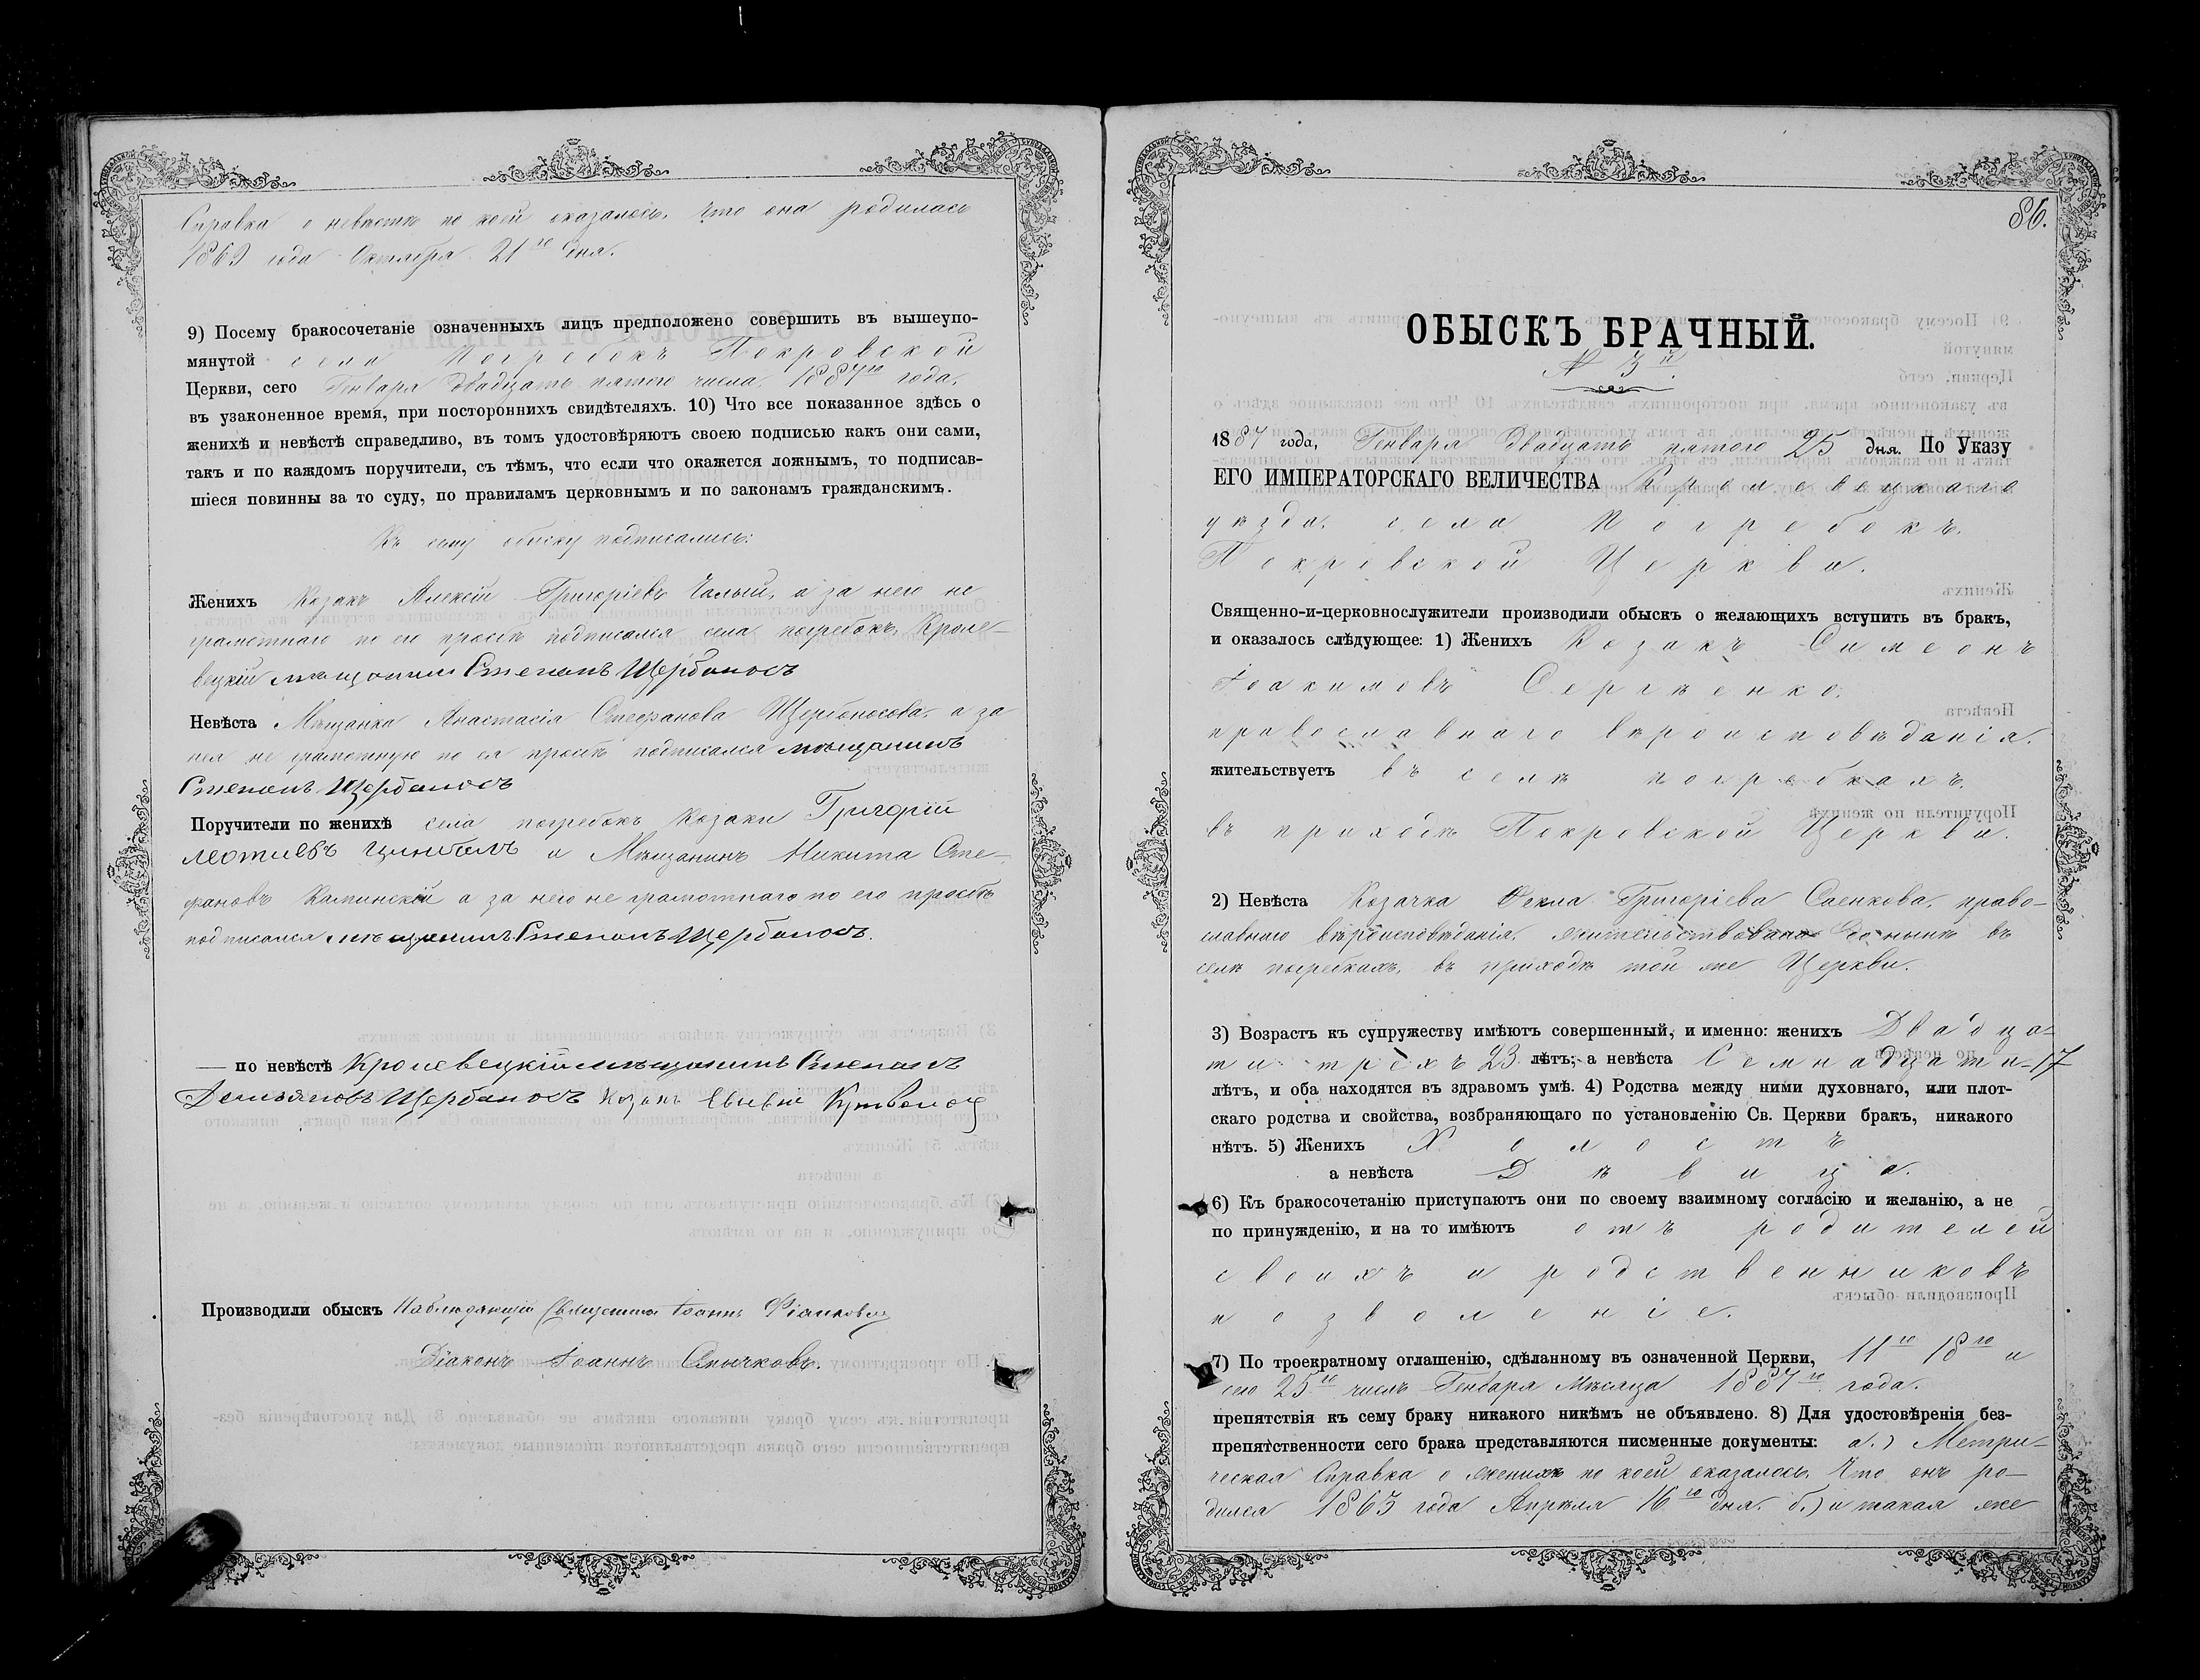 Справка о невѣстѣ по коей оказалось, что она родилась
1869 года Октября 21го дня.
9) Посему бракосочетаніе означенныхъ лицъ предположено совершить въ вышеупо-
мянутой села Погребокъ Покровской
Церкви, сего Генваря двадцать пятого числа 1887го года.
въ узаконенное время, при постороннихъ свидѣтеляхъ. 10) Что все показанное здѣсь о
женихѣ и невѣстѣ справедливо, въ томъ удостовѣряютъ своею подписью какъ они сами,
такъ и по каждомъ поручители, съ тѣмъ, что если что окажется ложнымъ, то подписав-
шіеся повинны за то суду, по правиламъ церковнымъ и по законамъ гражданскимъ.
Къ сему обыску подписались:
Женихъ Козакъ Алексій Григоріевъ Чалый, а за него не
грамотнаго по его просьбѣ подписался села погребокъ, Кроле-
вецкій мѣщанин Степанъ Щербонос
Невѣста Мѣщанка Анастасія Стефанова Щербоносова, а за
нея не грамотную по ея просьбѣ подписался мѣщанинъ
Степанъ Щербонось
Поручители по женихѣ села погребокъ Козаки Григорій
и Мѣщанинъ Никита Сте-
фановъ Каминскій а за него не грамотнаго по его просьбѣ
подписался мѣщанинъ Степанъ Щербонось.
— по невѣстѣ Кролевецкій мѣщанинъ Степанъ
Демьяновъ Щербонось Козакъ
Производили обыскъ Наблюдающій Священникъ Іоаннъ
Діаконъ Іоаннъ Смычковъ.
86.
ОБЫСКЪ БРАЧНЫЙ.
№ 3й
1887 года, Генваря двадцать пятого 25 дня. По Указу
ЕГО ИМПЕРАТОРСКАГО ВЕЛИЧЕСТВА Кролевецкаго
уѣзда, села Погребокъ,
Покровской Церкви.
Священно-и-церковнослужители производили обыскъ о желающихъ вступить въ бракъ,
и оказалось слѣдующее: 1) Женихъ Козакъ Симеонъ
Іоакимовъ Сергѣенко,
православнаго вѣроисповѣданія,
жительствуетъ въ селѣ погребкахъ,
въ приходѣ Покровской Церкви.
2) Невѣста Козачка Фекла Григоріева Саенкова, право-
славнаго вѣроисповѣданія, жительствовала до нынѣ въ
селѣ погребкахъ, въ приходѣ той же Церкви.
3) Возрастъ къ супружеству имѣютъ совершенный, и именно: женихъ Двадца-
ти трехъ 23 лѣтъ; а невѣста Семнадцати 17
лѣтъ, и оба находятся въ здравомъ умѣ. 4) Родства между ними духовнаго, или плот-
скаго родства и свойства, возбраняющаго по установленію Св. Церкви бракъ, никакого
нѣтъ. 5) Женихъ Холостъ
а невѣста Дѣвица.
6) Къ бракосочетанію приступаютъ они по своему взаимному согласію и желанію, а не
по принужденію, и на то имѣютъ отъ родителей
своихъ и родственниковъ
позволеніе.
7) По троекратному оглашенію, сдѣланному въ означенной Церкви, 11го 18го и
сего 25го числъ Генваря Мѣсяца 1887го года.
препятствія къ сему браку никакого никѣмъ не объявлено. 8) Для удостовѣренія без-
препятственности сего брака представляются писменные документы: а.) Метри-
ческая Справка о женихѣ по коей оказалось, Что онъ ро-
дился 1863 года Апрѣля 16го дня. б.) и такая же